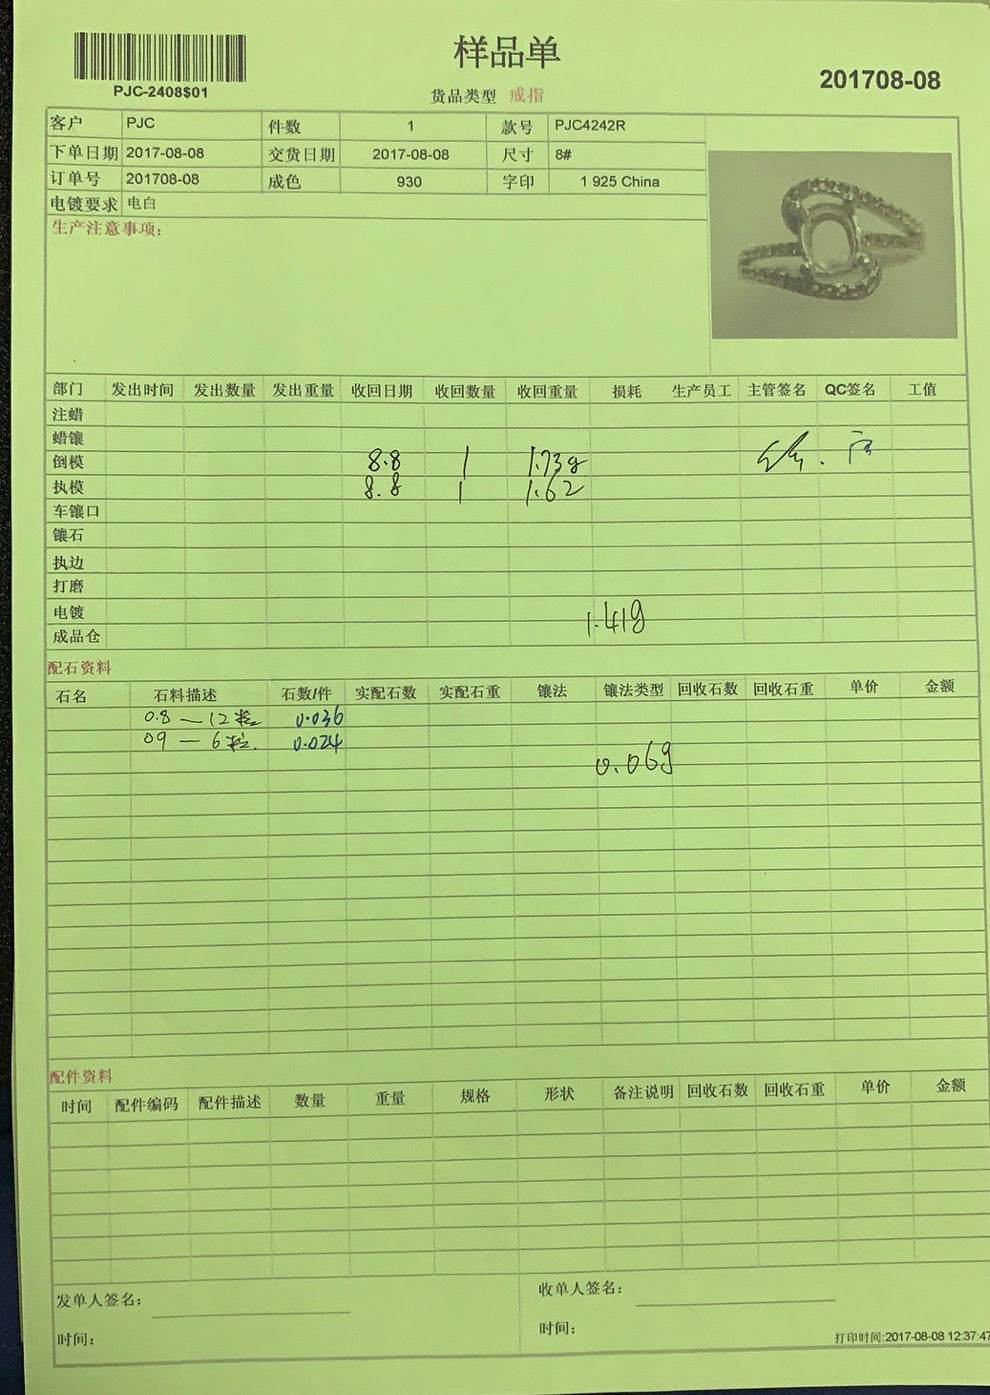 样品单
PJC-2408$01
货品类型 戒指
201708-08
客户 PJC 件数 1 款号 PJC4242R
下单日期 2017-08-08 交货日期 2017-08-08 尺寸 8#
订单号 201708-08 成色 930 字印 1 925 China
电镀要求 电白
生产注意事项:
部门 发出时间 发出数量 发出重量 收回日期 收回数量 收回重量 损耗 生产员工 主管签名 QC签名 工值
注蜡
蜡镶
倒模 8.8 1 1.73g
执模 8.8 1 1.62
车镶口
镶石
执边
打磨
电镀 1.41g
成品仓
配石资料
石名 石料描述 石数/件 实配石数 实配石重 镶法 镶法类型 回收石数 回收石重 单价 金额
0.8 — 12粒 0.036
09 — 6粒. 0.024
0.06g
配件资料
时间 配件编码 配件描述 数量 重量 规格 形状 备注说明 回收石数 回收石重 单价 金额
发单人签名: 收单人签名:
时间: 时间:
打印时间:2017-08-08 12:37:47